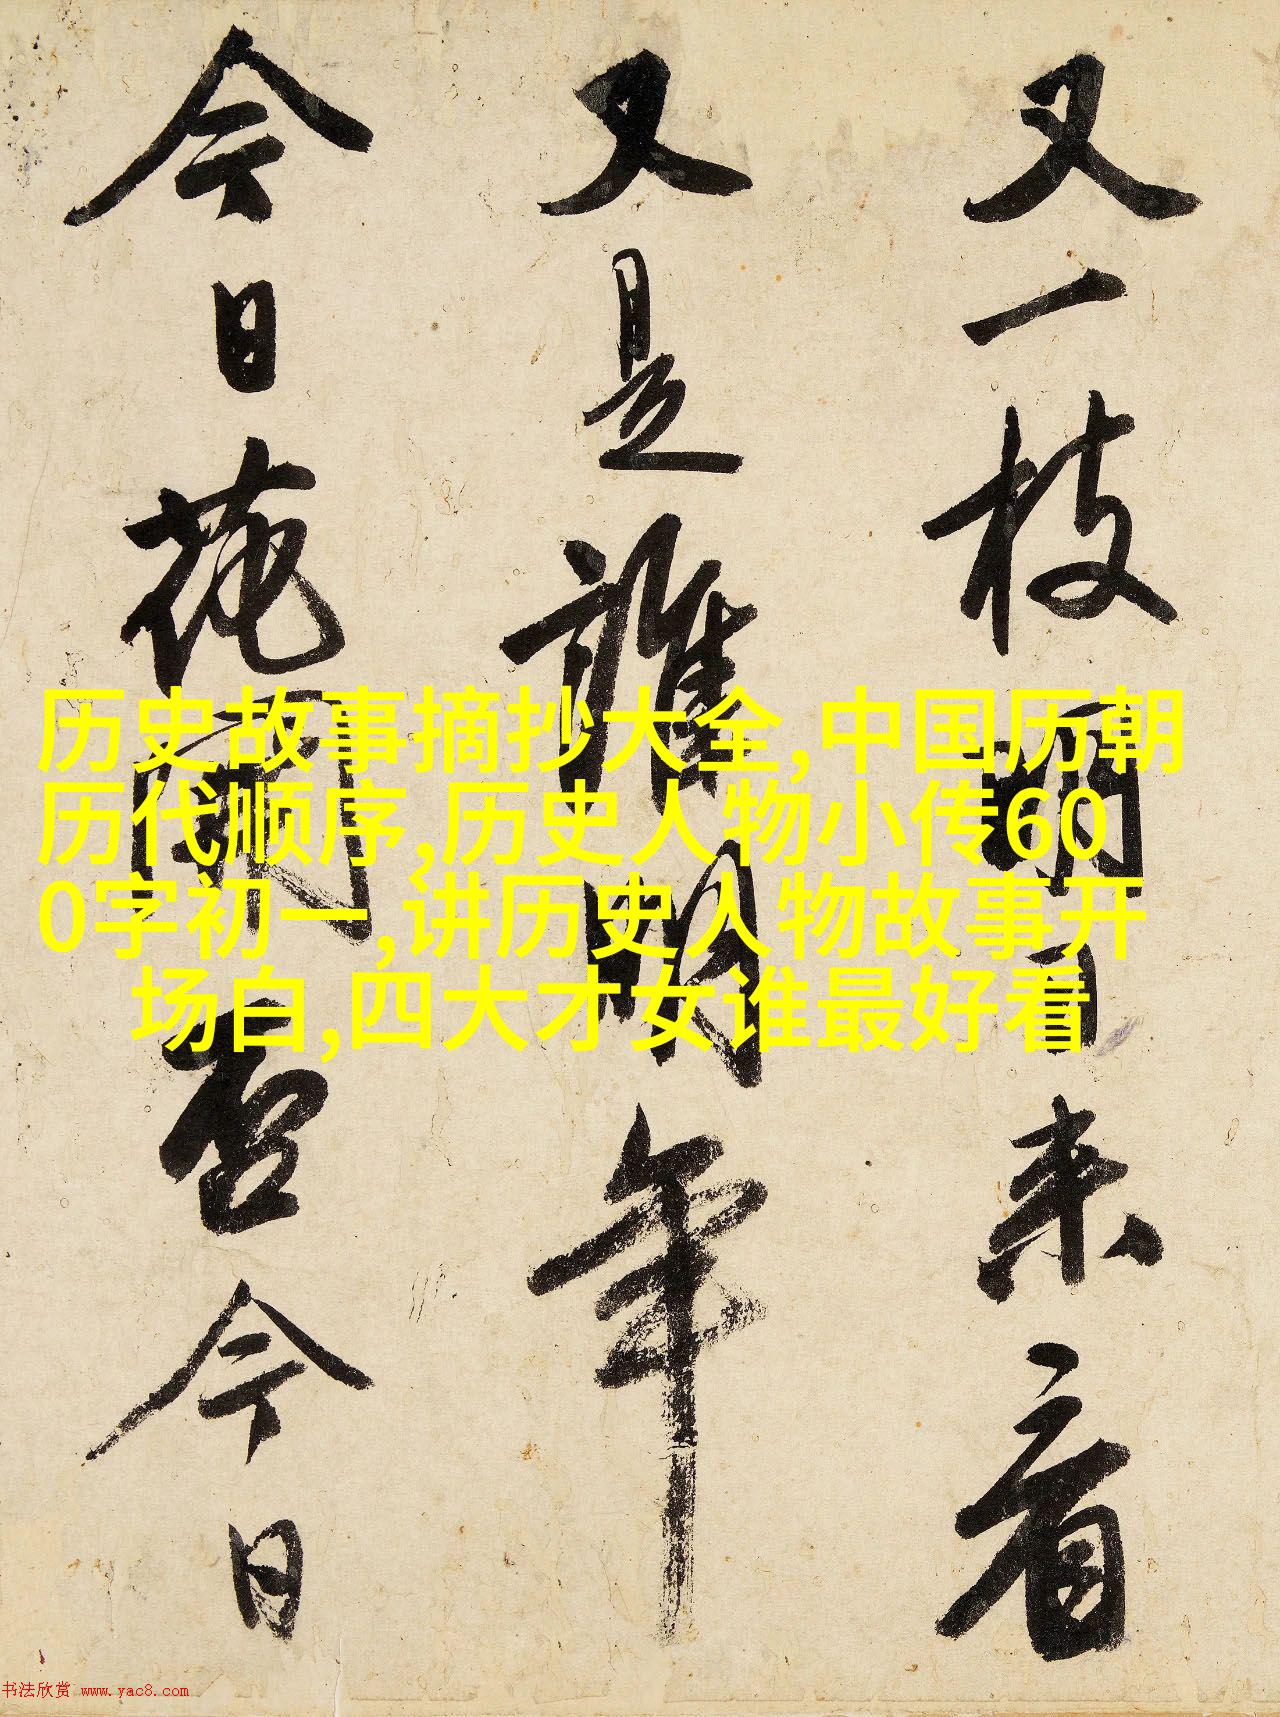 又一枝明日来看
又是誰明年
今日花開否今日
历史故事摘抄大全,中国历朝
历代顺序,历史人物小传60
0字初一,讲历史人物故事开
场白,四大才女谁最好看
书法欣赏 www.yac8.com